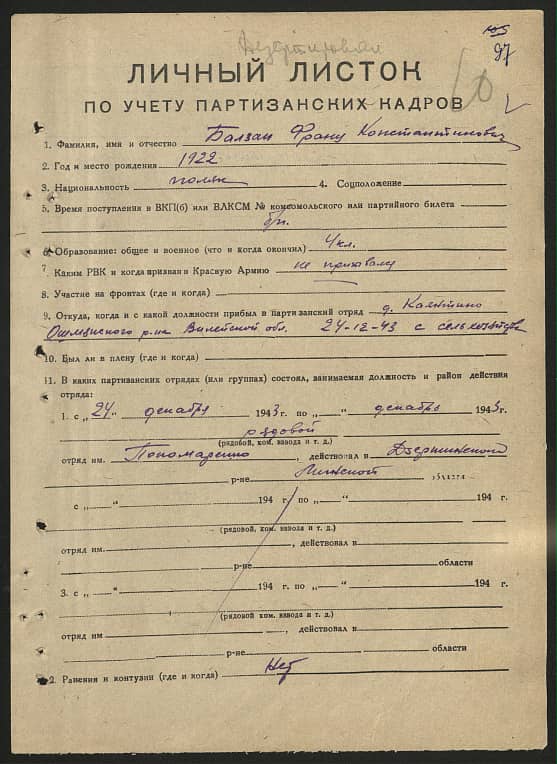 Дезертировал
97
ЛИЧНЫЙ ЛИСТОК
ПО УЧЕТУ ПАРТИЗАНСКИХ КАДРОВ
1. Фамилия, имя и отчество Балзан Франц Константинович
2. Год и место рождения 1922
3. Национальность поляк 4. Соцположение
5. Время поступления в ВКП(б) или ВЛКСМ № комсомольского или партийного билета
б/п.
6. Образование: общее и военное (что и когда окончил) 4 кл.
7. Каким РВК и когда призван в Красную Армию не призывался
8. Участие на фронтах (где и когда)
9. Откуда, когда и с какой должности прибыл в партизанский отряд д.
Ошмянского р-на Вилейской обл. 24-12-43 с сельхозяйства
10. Был ли в плену (где и когда)
11. В каких партизанских отрядах (или группах) состоял, занимаемая должность и район действия
отряда:
1. с „24“ декабря 1943 г. по „ “ декабрь 1943 г.
рядовой
(рядовой, ком. взвода и т. д.)
отряд им. Пономаренко, действовал в Дзержинского
р-не Минской области
с „ “ 194 г. по „ “ 194 г.
(рядовой, ком. взвода и т. д.)
отряд им. , действовал в
р-не области
3. с „ “ 194 г. по „ “ 194 г.
(рядовой, ком. взвода и т. д.)
отряд им , действовал в
р-не области
2. Ранения и контузии (где и когда) Нет